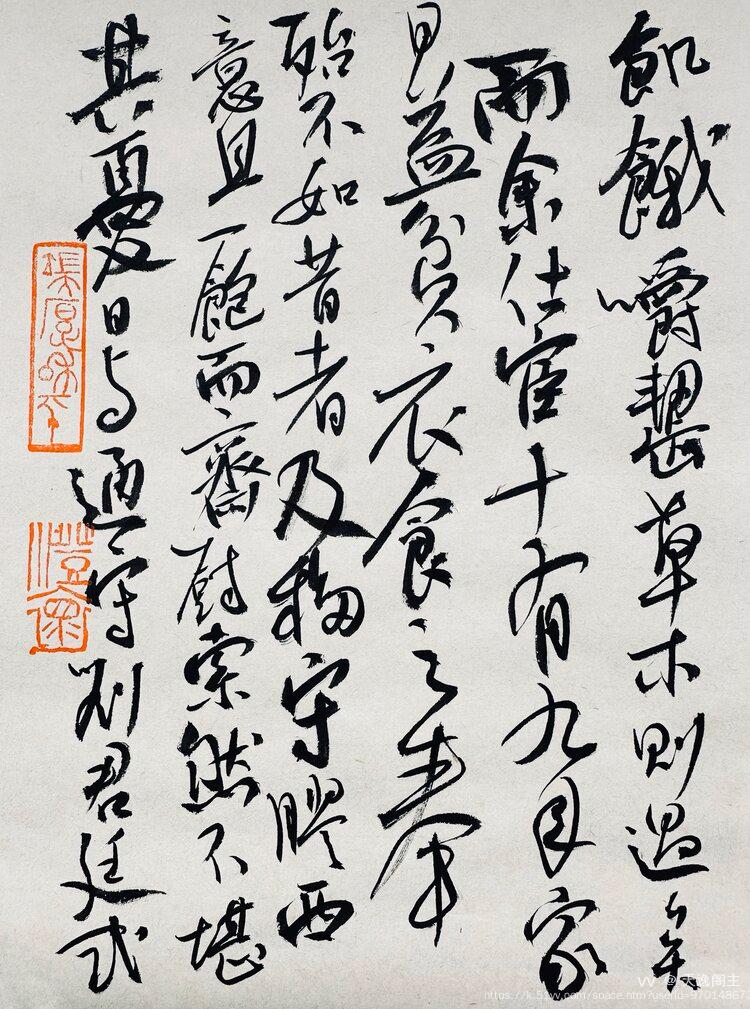 飢餓嚼齧草木則過矣
而余仕宦十有九年家
日益貧衣食之奉
殆不如昔者及移守膠西
意且一飽而齋厨索然不堪
其憂日与通守刘君廷式
VV @ 天逸閣主